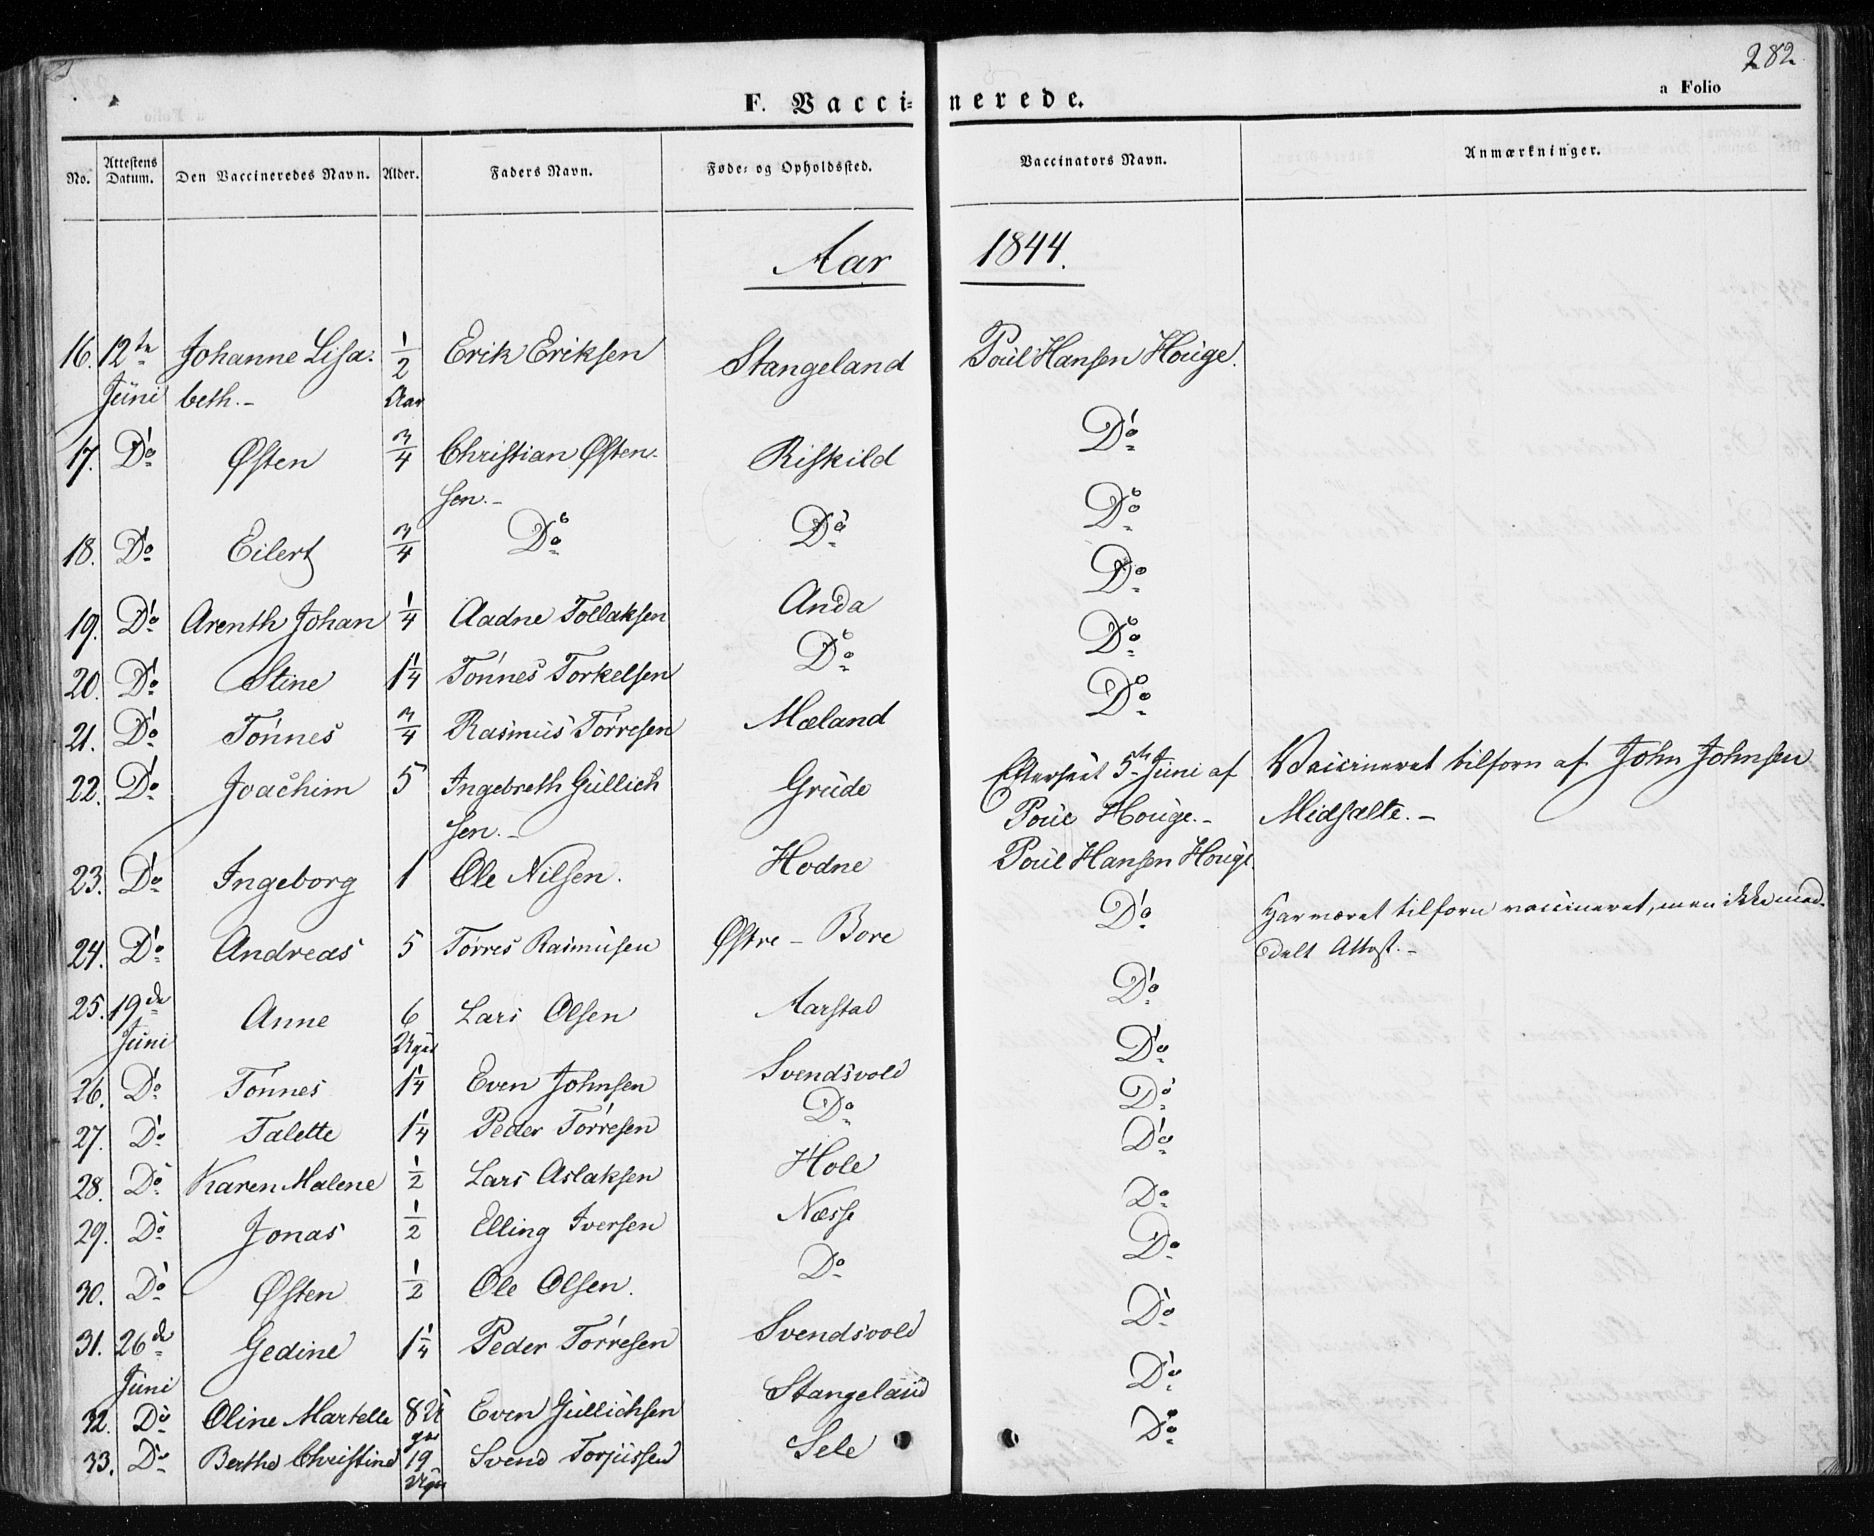 282.
a Folio
F. Vaccinerede.
No. Attestens Datum. Den Vaccineredes Navn. Alder. Faders Navn. Føde- og Opholdssted. Vaccinators Navn. Anmærkninger.
Aar 1844.
16. 12te Johanne Lisa- 1/2 Erik Eriksen Stangeland Poul Hansen Houge.
Juni beth.- Aar
17. Do Østen 3/4 Christian Østen- Riskild Do
sen.-
18. Do Eilert 3/4 Do Do Do
19. Do Arenth Johan 1/4 Aadne Tollaksen Anda Do
20. Do Stine 1 1/4 Tönnes Torkelsen Do Do
21. Do Tönnes 3/4 Rasmus Törresen Mæland Do
22. Do Joachim 5 Ingebreth Gullich Grude Efterseet 5te Juni af Vaccineret tilforn af John Johnsen
sen.- Poul Houge.- Midsælte.-
23. Do Ingeborg 1 Ole Nilsen. Hodne Poul Hansen Houge
24. Do Andreas 5 Törres Rasmusen Østre - Bore Do Har været tilforn vaccineret, men ikke med-
delt Attest.-
25. 19de Anne 6 Lars Olsen Aarstad Do
Juni Uger
26. Do Tönnes 1 1/4 Even Johnsen Svendsvold Do
27. Do Talette 1 1/4 Peder Törresen Do Do
28. Do Karen Malene 1/2 Lars Aslaksen Hole Do
29. Do Jonas 1/2 Elling Iversen Næsse Do
30. Do Østen 1/2 Ole Olsen. Do Do
31. 26de Gedine 1 1/4 Peder Törresen Svendsvold Do
Juni
32. Do Oline Martelle 8 U Even Gullichsen Stangeland Do
ger
33. Do Berthe Christine 19 Svend Torjussen Sele Do
Uger